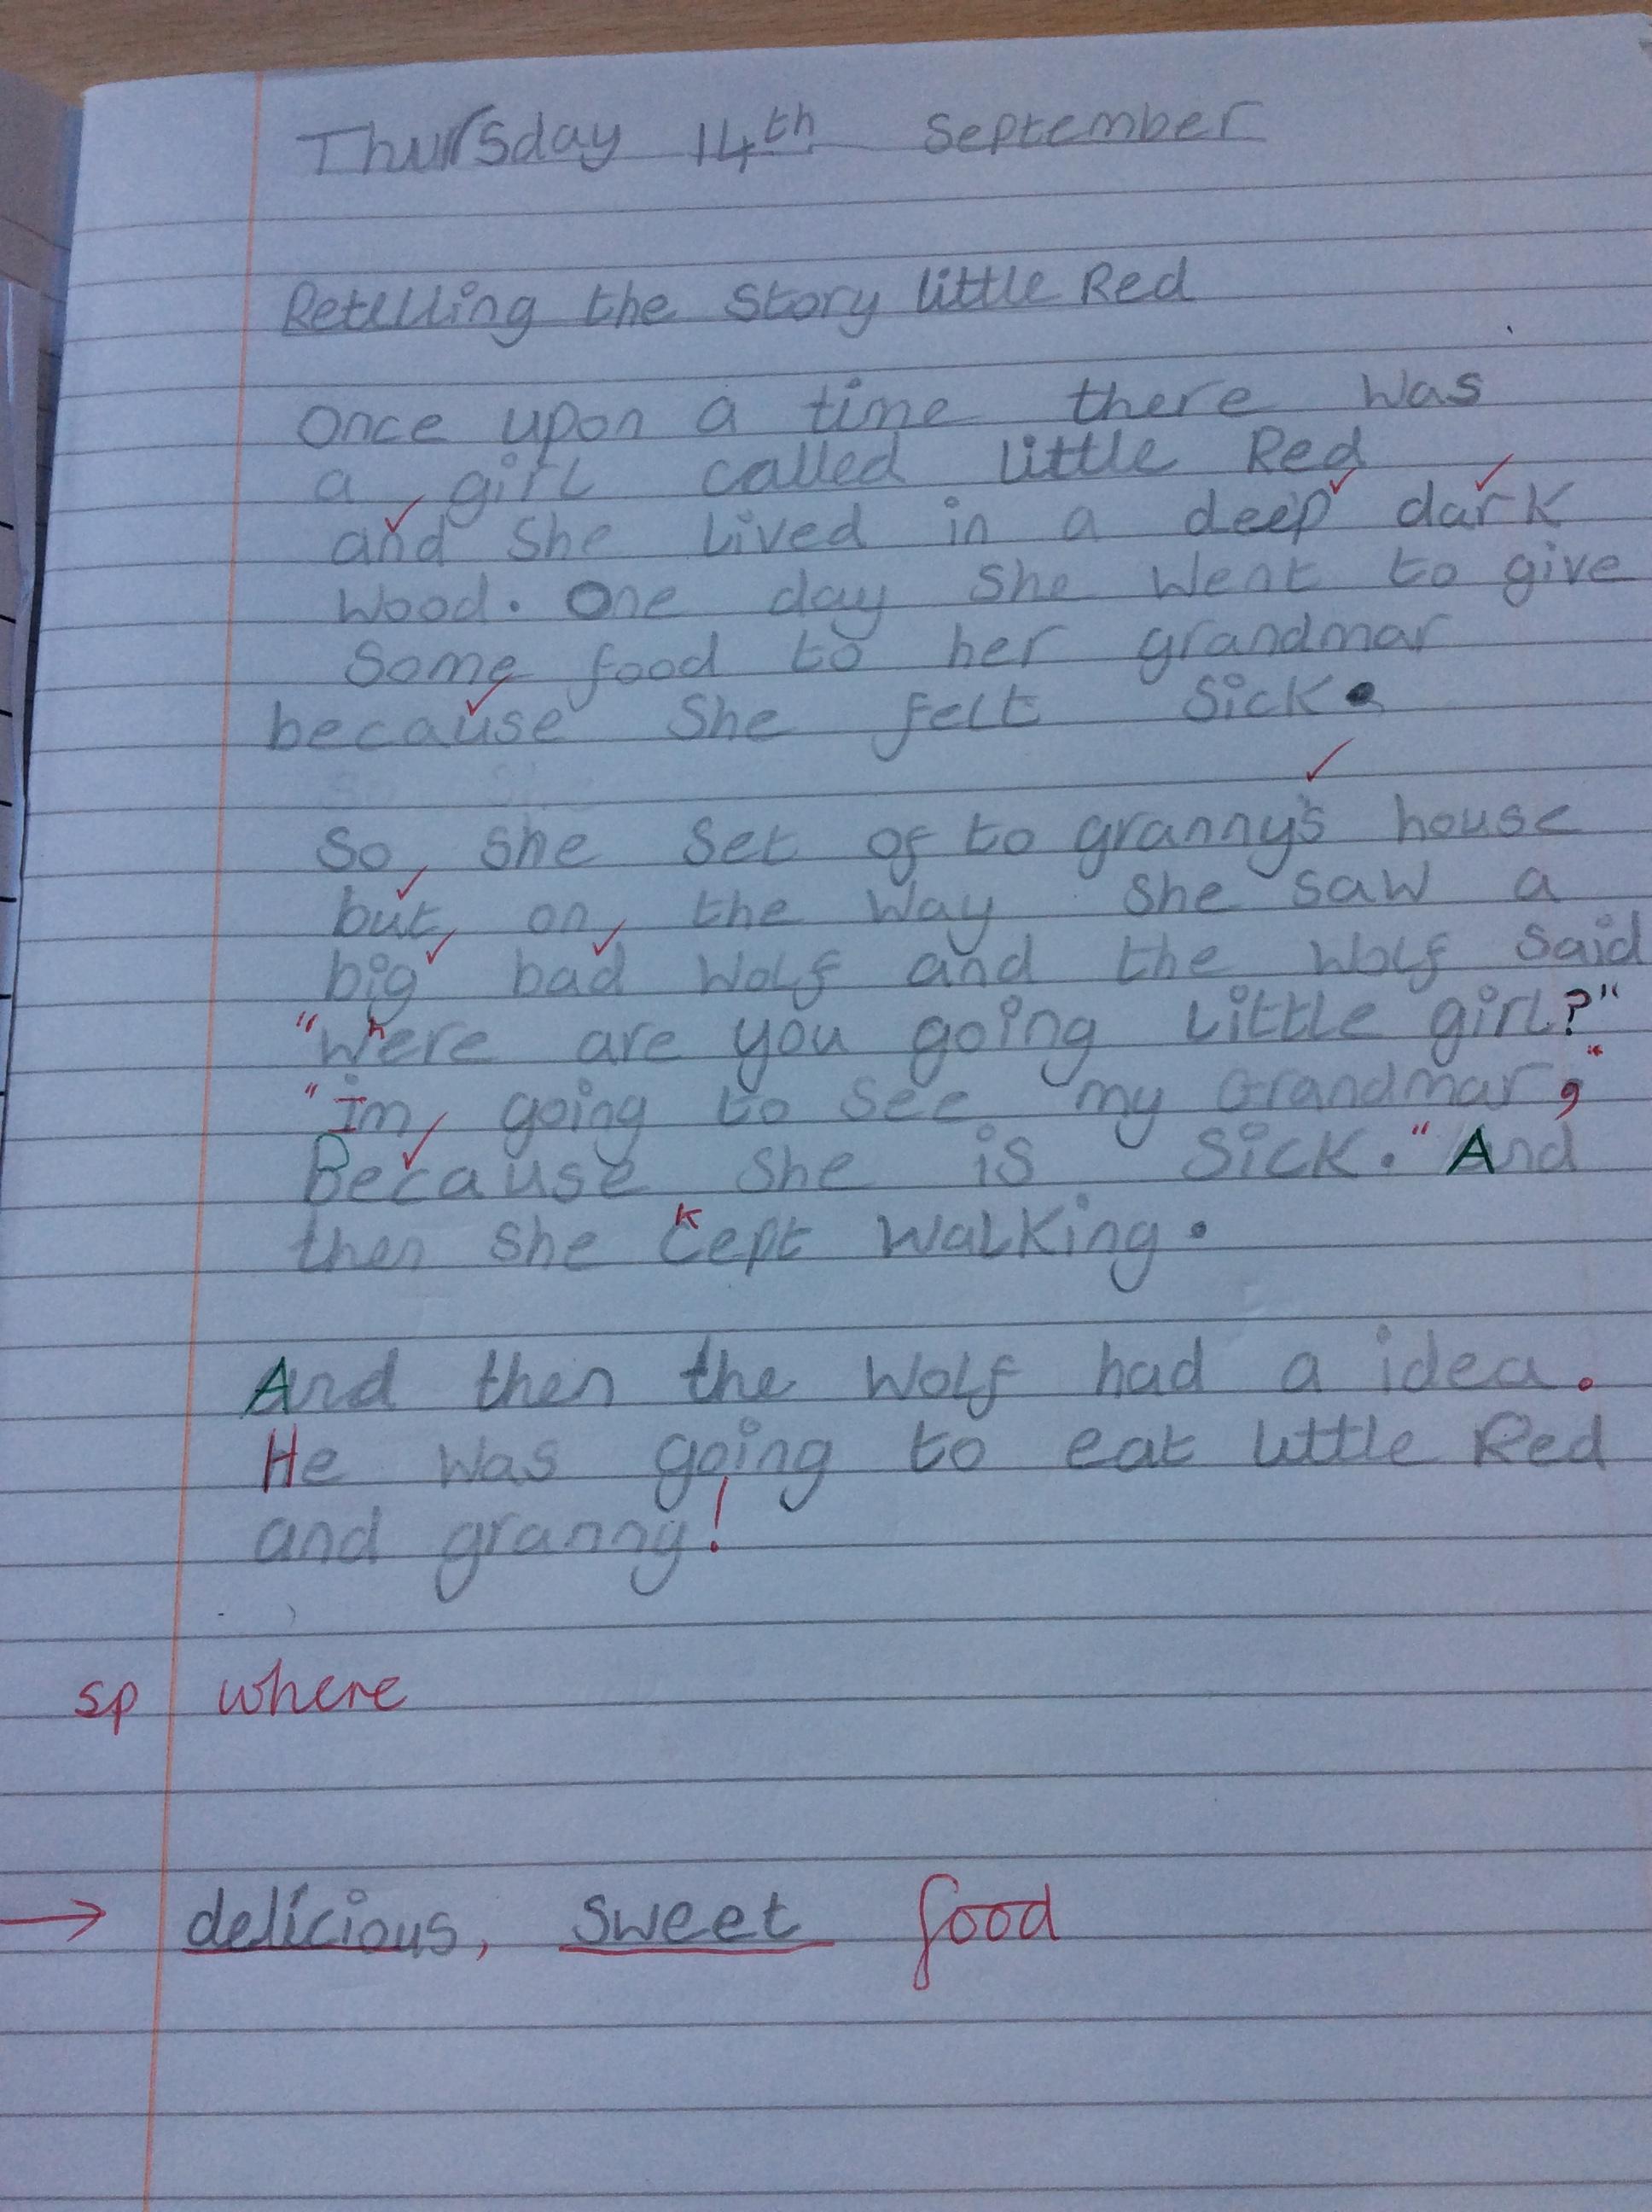 Thursday 14th September
Retelling the story little Red
Once upon a time there was
a girl called little Red
and she lived in a deep dark
wood. One day she went to give
some food to her grandmar
because she felt sick.
So she set of to granny's house
but on the way she saw a
big bad wolf and the wolf said
"Where are you going little girl?"
"Im going to see my Grandmar,"
Because she is sick." And
then she kept walking.
And then the wolf had a idea.
He was going to eat little Red
and granny!
sp where
→ delicious, sweet food